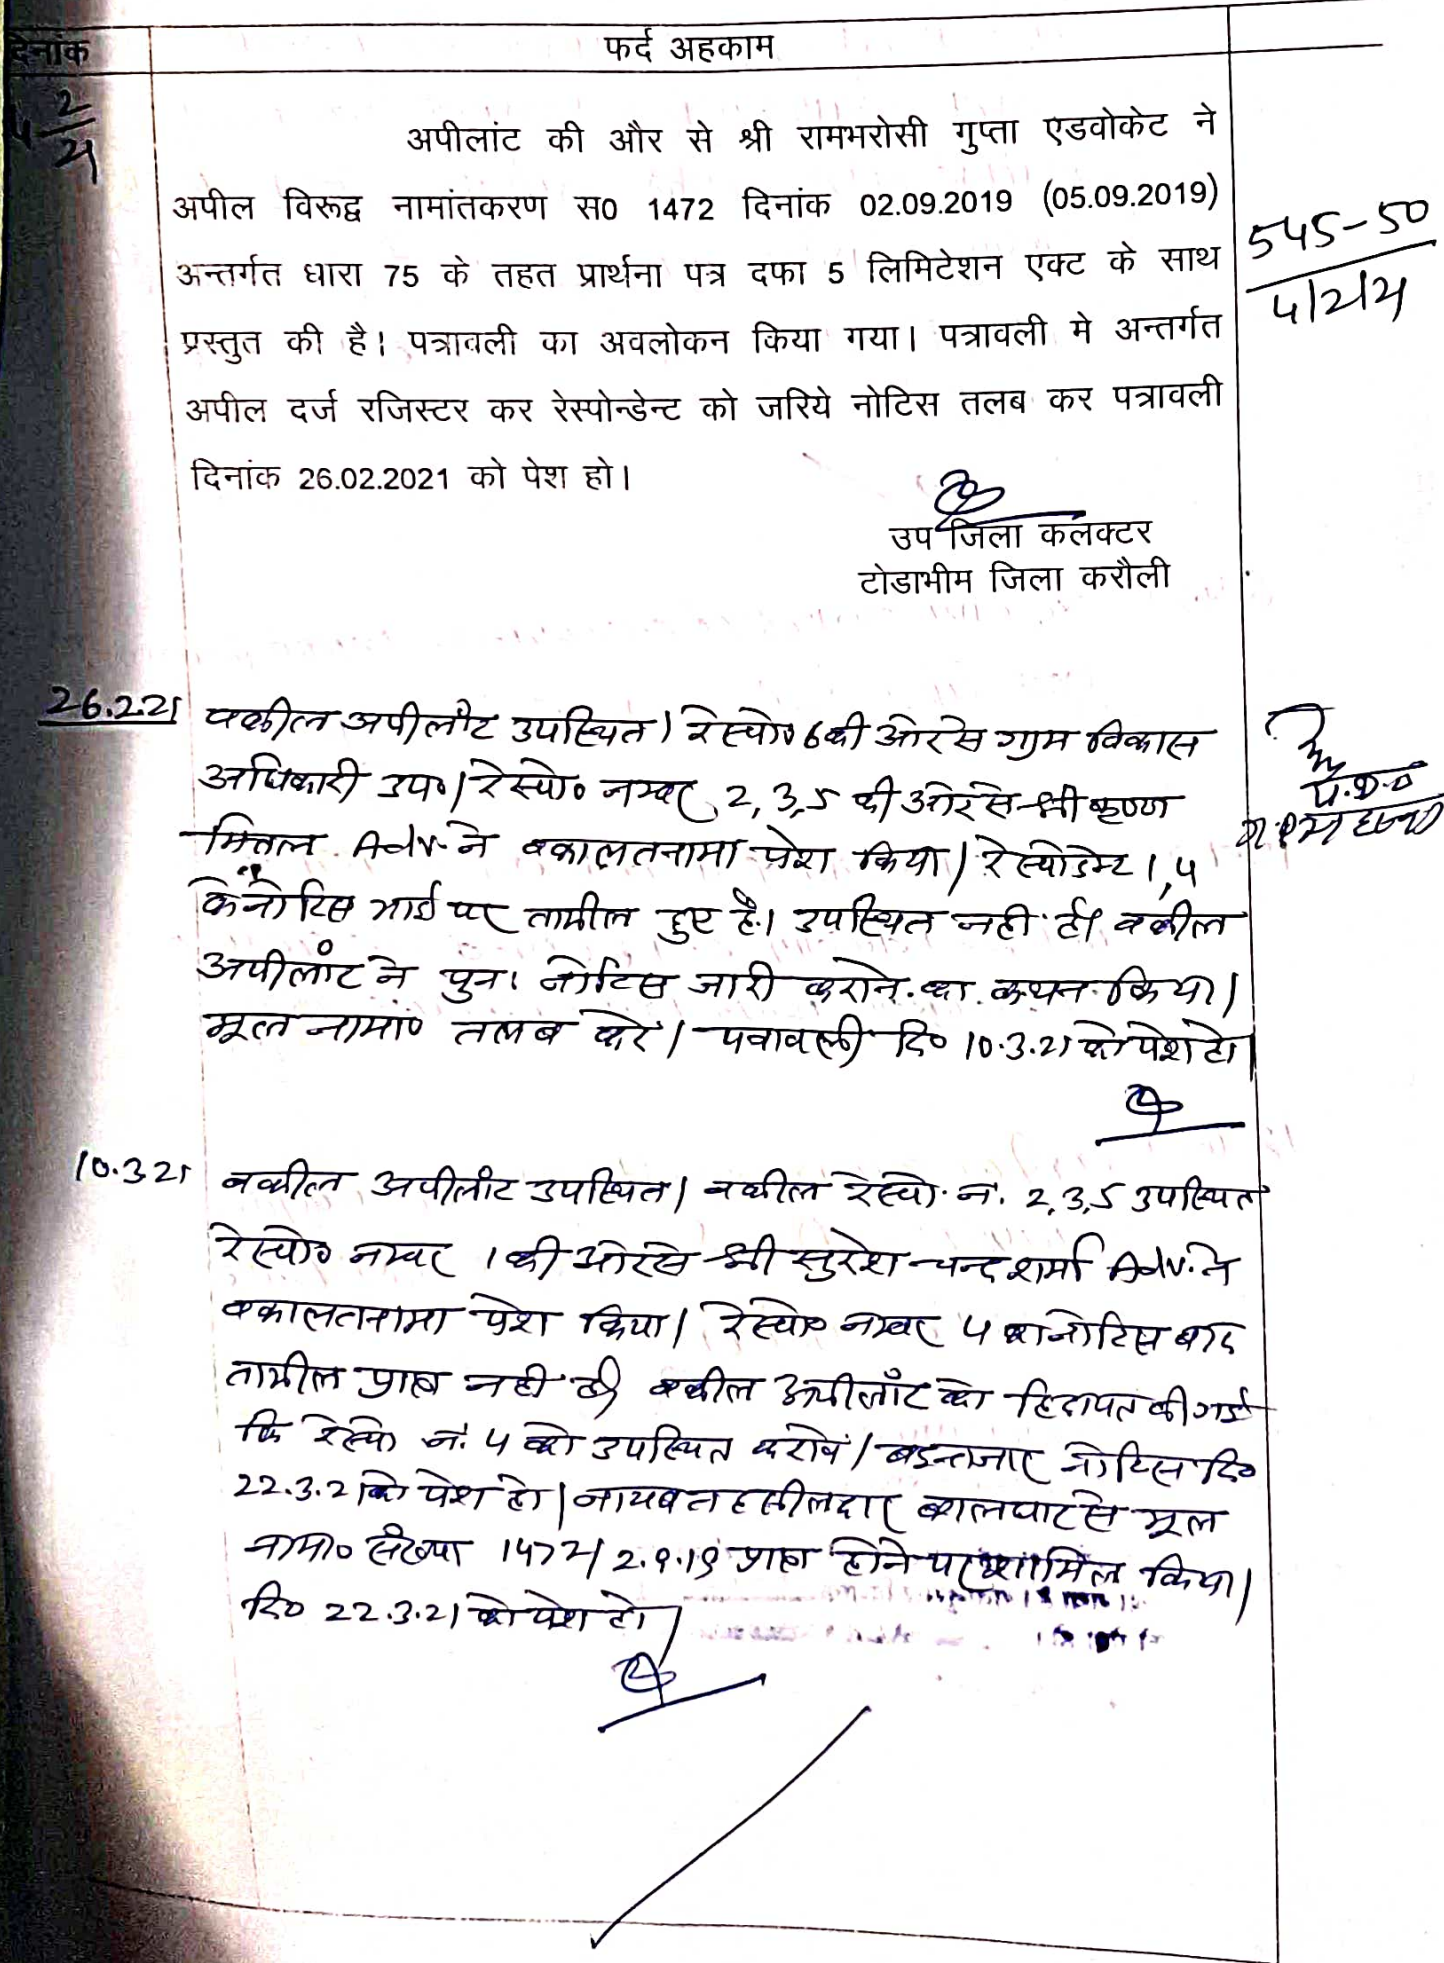 दिनांक
फर्द अहकाम
4/2/21
अपीलांट की और से श्री रामभरोसी गुप्ता एडवोकेट ने
अपील विरूद्व नामांतकरण स0 1472 दिनांक 02.09.2019 (05.09.2019)
अन्तर्गत धारा 75 के तहत प्रार्थना पत्र दफा 5 लिमिटेशन एक्ट के साथ
प्रस्तुत की है। पत्रावली का अवलोकन किया गया। पत्रावली मे अन्तर्गत
अपील दर्ज रजिस्टर कर रेस्पोन्डेन्ट को जरिये नोटिस तलब कर पत्रावली
दिनांक 26.02.2021 को पेश हो।
545-50
4/2/21
उप जिला कलक्टर
टोडाभीम जिला करौली
26.2.21 वकील अपीलांट उपस्थित। रेस्पो० 6 की ओर से ग्राम विकास
अधिकारी उप०। रेस्पो० नम्बर 2,3,5 की ओर से श्री कृष्ण
मित्तल Adv. ने वकालतनामा पेश किया। रेस्पोडेन्ट 1,4
के नोटिस भाई पर तामील हुए है। उपस्थित नही है। वकील
अपीलांट ने पुनः नोटिस जारी कराने का कथन किया।
मूल नामा० तलब करे। पत्रावली दि० 10.3.21 को पेश हो।
10.3.21 वकील अपीलांट उपस्थित। वकील रेस्पो. नं. 2,3,5 उपस्थित
रेस्पो० नम्बर 1 की ओर से श्री सुरेश चन्द शर्मा Adv. ने
वकालतनामा पेश किया। रेस्पो० नम्बर 4 का नोटिस बाद
तामील प्राप्त नही है। वकील अपीलाँट को हिदायत की गई
कि रेस्पो नं. 4 को उपस्थित करावें। बइन्तजार नोटिस दि०
22.3.21 को पेश हो। नायब तहसीलदार बालघाट से मूल
नामा० संख्या 1472/2.9.19 प्राप्त होने पर शामिल किया।
दि० 22.3.21 को पेश हो।